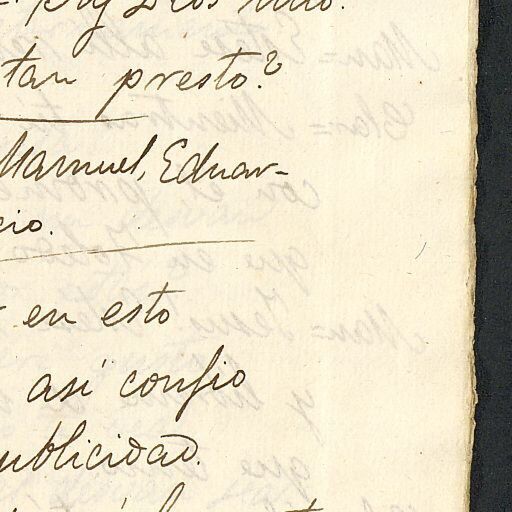 Ay Dios mio.
tan presto?
Manuel, Eduar-
cio.
en esto
así confio
ublicidad.